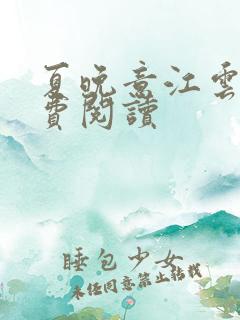 夏晚意江雲
費閱讀
睡包少女
未經同意禁止轉載